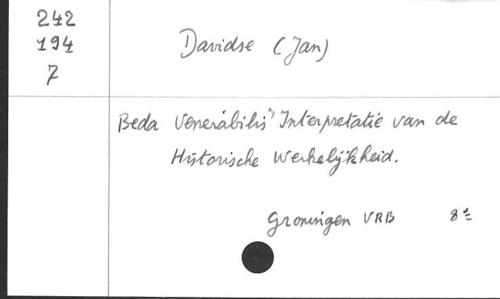 242
194
7
Davidse (Jan)
Beda Venerabilis' Interpretatie van de
Historische Werkelijkheid.
Groningen VRB 8º